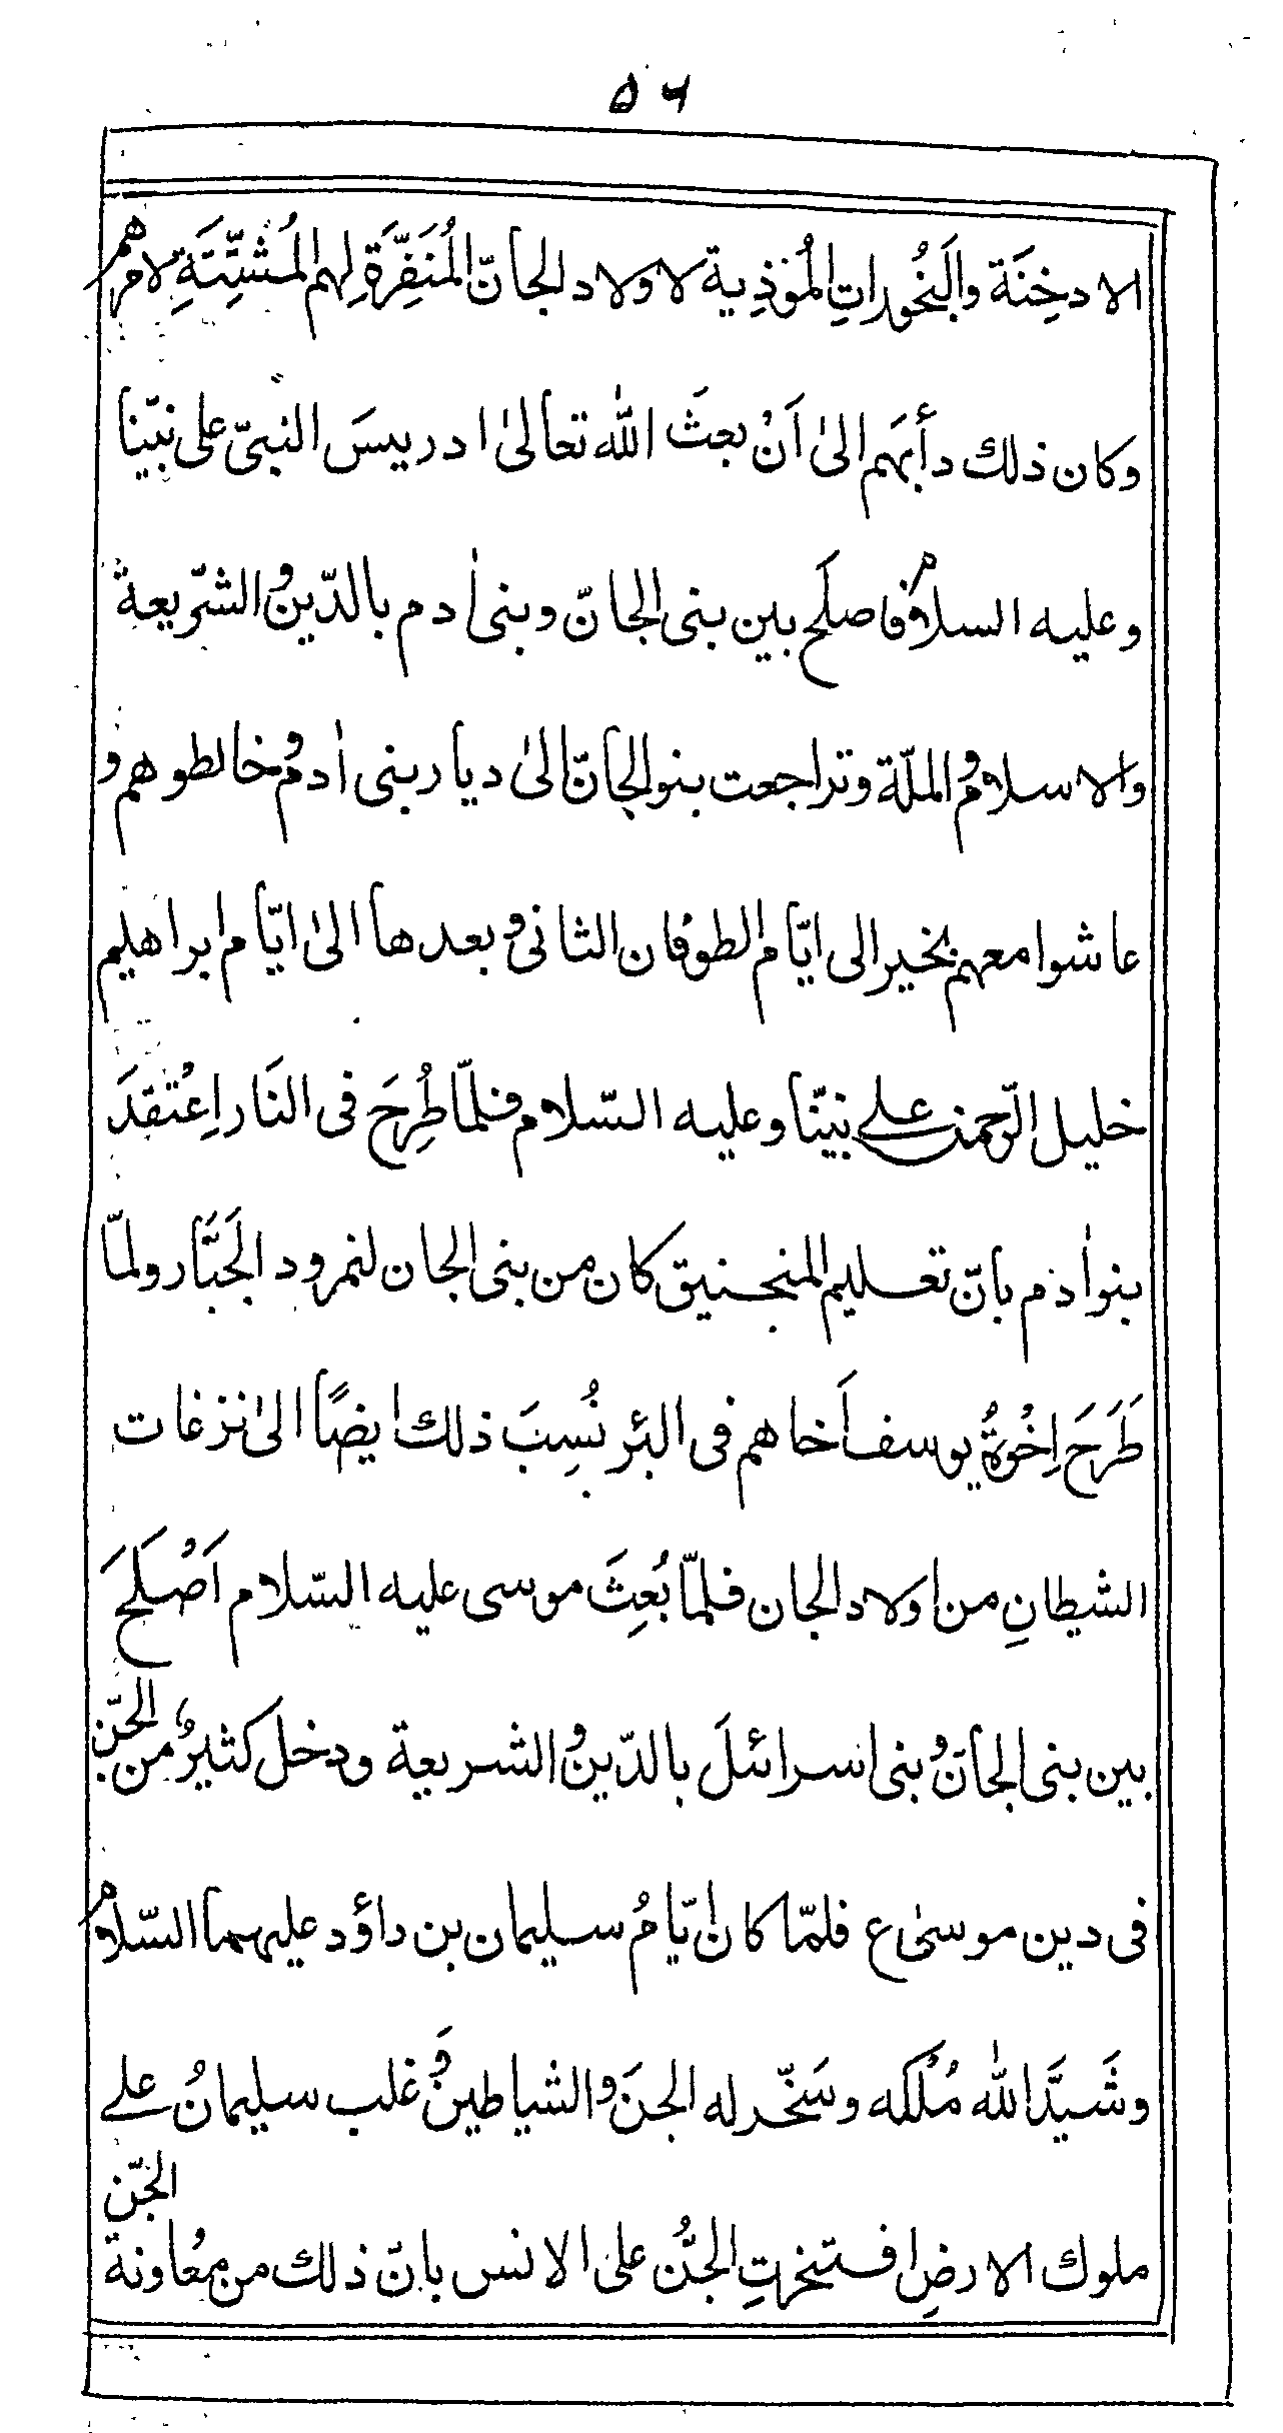 ٥٦
الادخِنَة والبَخُوراتِ المُوذِية لاولاد الجانّ المُنَفِّرَةِ لِهم المُشَتِّتَةِ لامرهم
وكان ذلك دأبهَم الىٰ اَنْ بعثَ اللّٰه تعالىٰ ادريسَ النبیّ علی نبیّنا
وعليه السلام فاصلَح بين بنی الجانّ وبنی اٰدم بالدّين والشّريعة
والاسلام والملّة وتراجعت بنو الجانّ الىٰ ديار بنی اٰدم وخالطوهم و
عاشوا معهم بخير الی ایّام الطوفان الثانی وبعدها الیٰ ایّام ابراهيم
خليل الرّحمن علے نبیّنا وعليه السّلام فلمّا طُرِحَ فی النَار اِعْتقدَ
بنو اٰدم بانّ تعليم المنجنيق كان من بنی الجان لنمرود الجَبَّار ولمّا
طَرَحَ اِخْوةُ يوسف اَخاهم فی البئر نُسِبَ ذلك ايضًا الیٰ نزغات
الشيطانِ من اولاد الجان فلمّا بُعِثَ موسی عليه السّلام اَصْلَحَ
بين بنی الجانّ وبنی اسرائلَ بالدّين والشريعة ودخل كثيرٌ من الجنّ
فی دين موسیٰ ع فلمّا كان ایّامُ سليمان بن داؤد عليهما السّلام
وشَيَّدَ اللّٰه مُلْكَه وسَخّر له الجنَ والشياطين وَغلب سليمانُ علے
ملوك الارضِ افتخرتِ الجنُّ علی الانس بانّ ذلك من معُاونة الجنّ